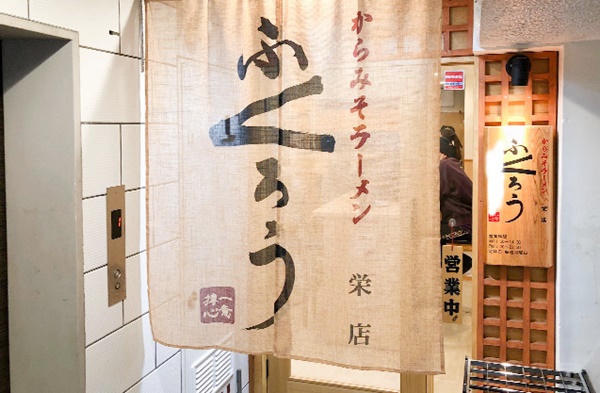 からみそラーメン
ふくろう
栄店
営業中
からみそラーメン
ふくろう
栄店
営業時間